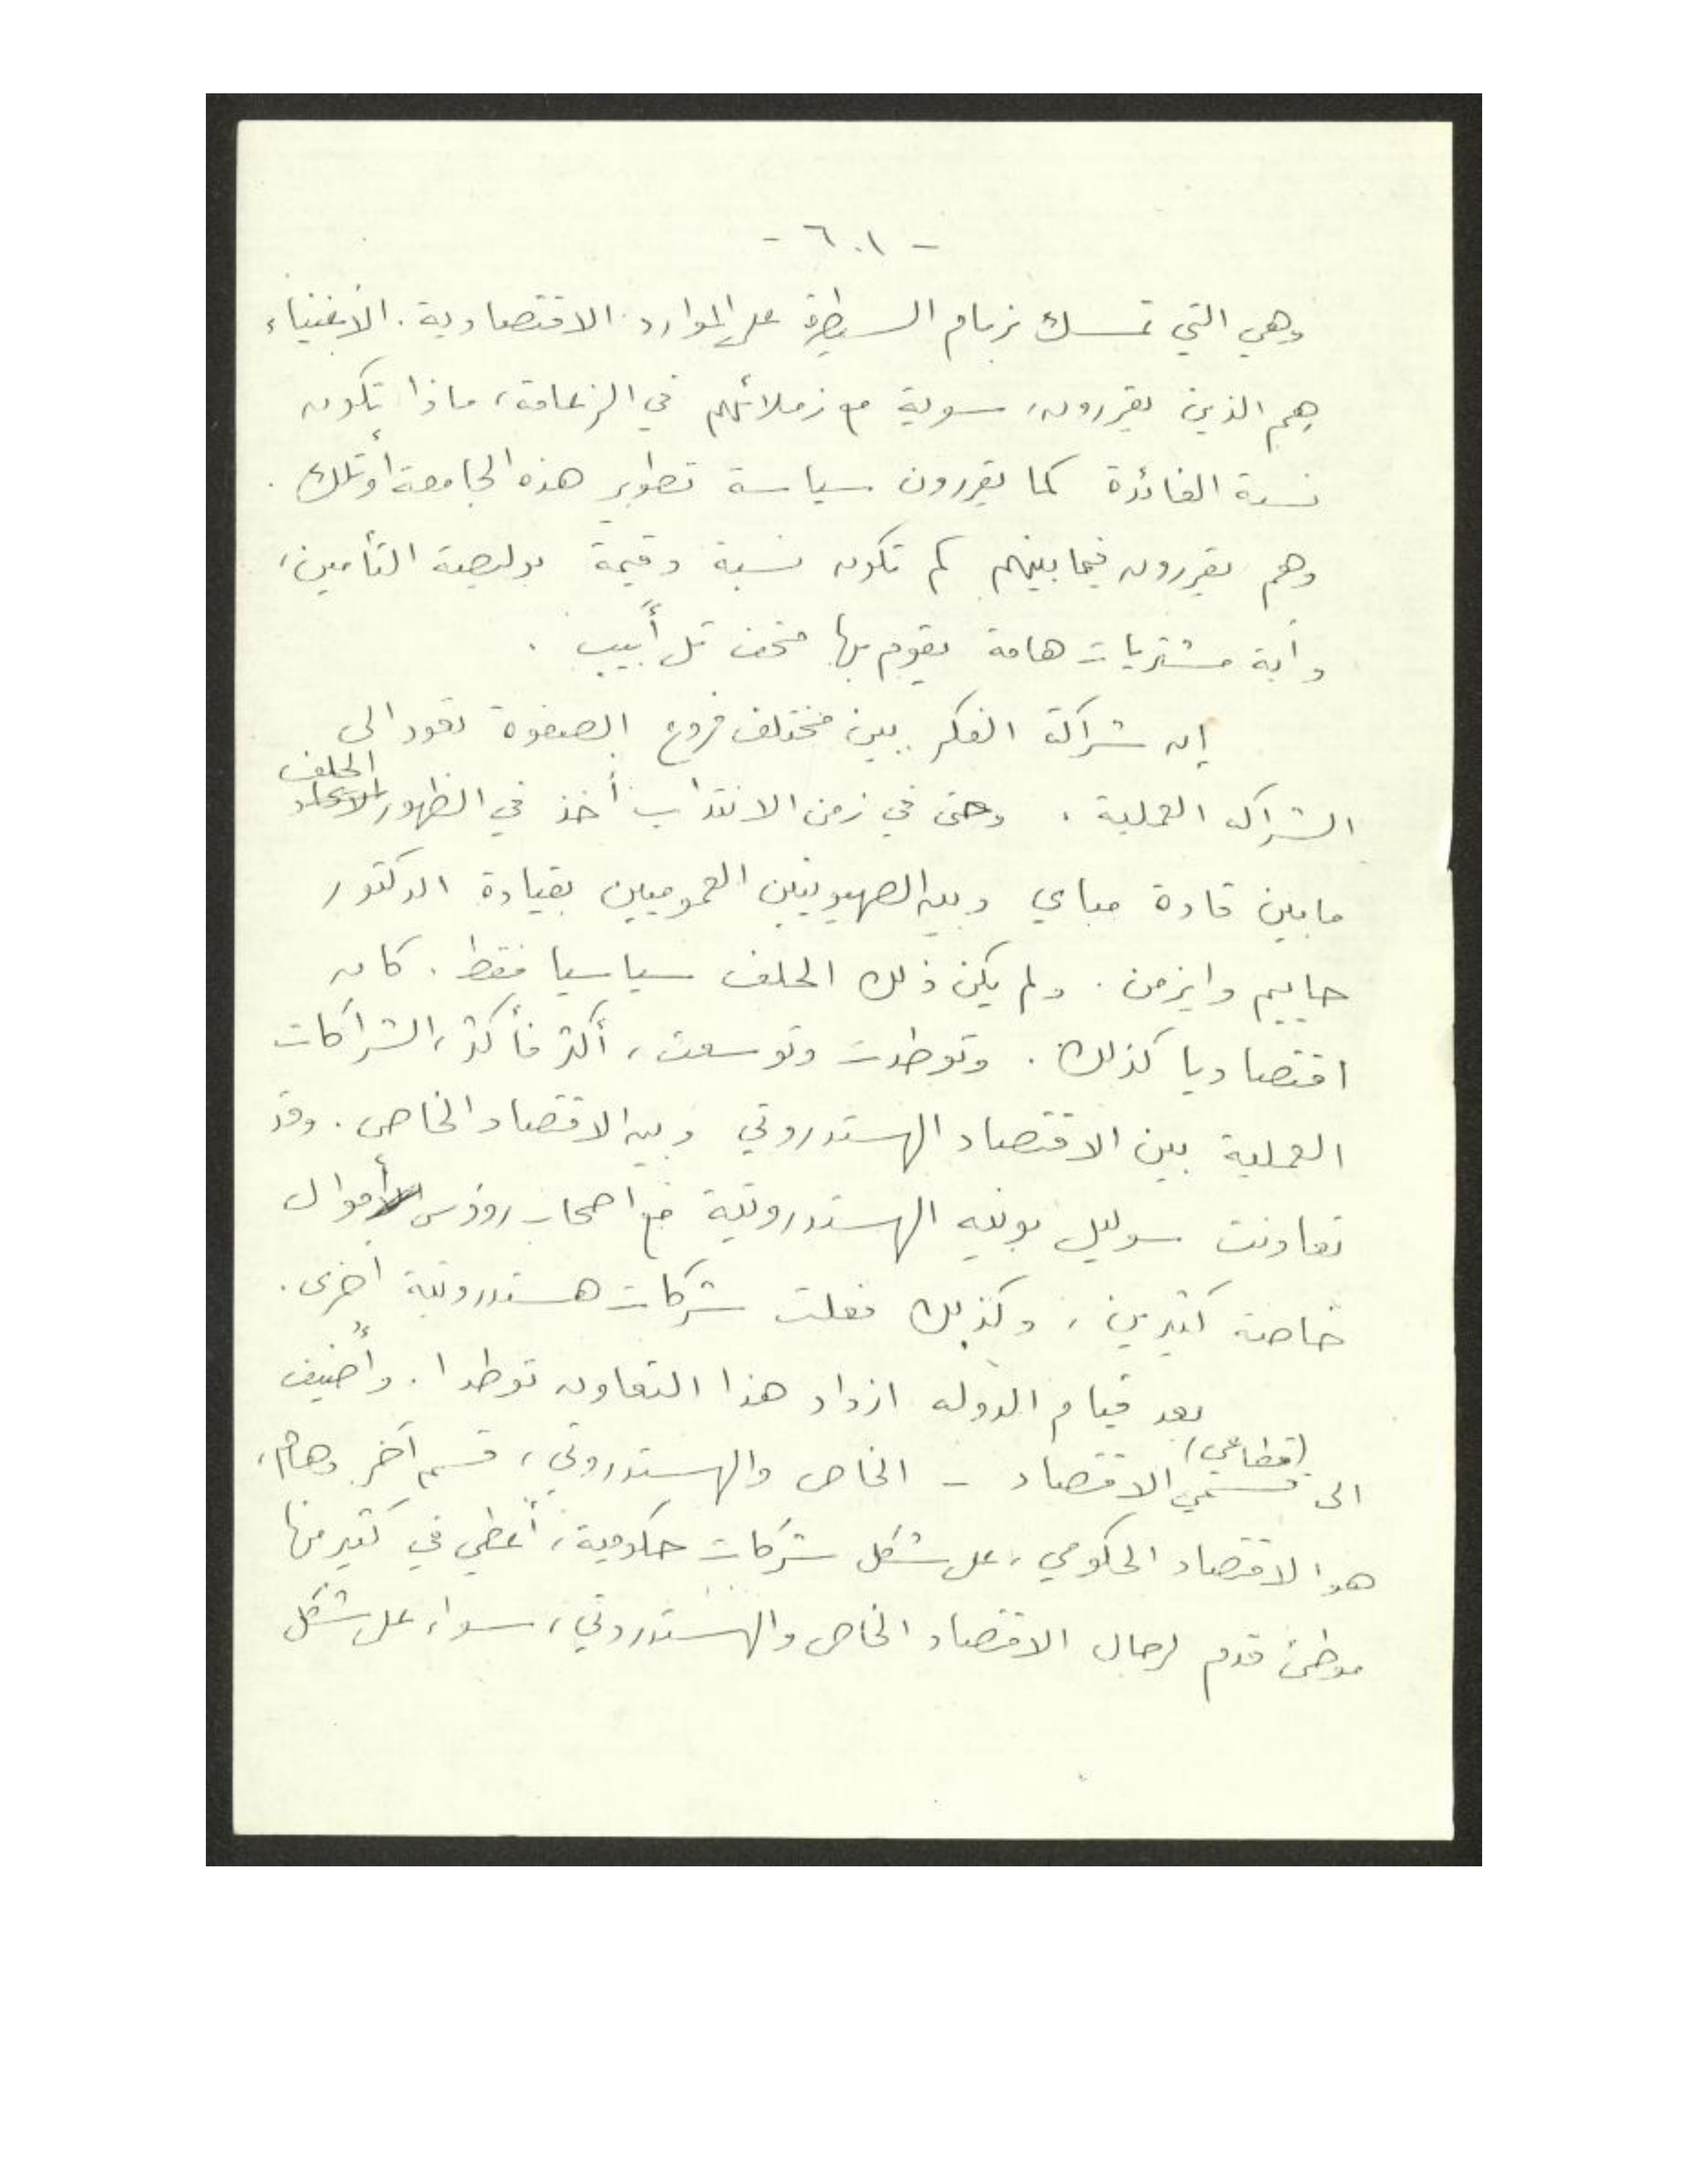 - ٦٠١ -
وهي التي تمسك بزمام السيطرة على الموارد الاقتصادية. الأغنياء
هم الذين يقررون، سوية مع زملائهم في الزعامة، ماذا تكون
نسبة الفائدة كما يقررون سياسة تطوير هذه الجامعة أو تلك.
وهم يقررون فيما بينهم كم تكون نسبة وقيمة بوليصة التأمين،
وأية مشتريات هامة يقوم بها متحف تل أبيب.
إن شراكة الفكر بين مختلف فروع الصفوة تقود الى
الحلف
الشراكة العملية. وحتى في زمن الانتداب أخذ في الظهور الاتحاد
ما بين قادة مباي وبين الصهيونيين العموميين بقيادة الدكتور
حاييم وايزمن. ولم يكن ذلك الحلف سياسيا فقط. كان
اقتصاديا كذلك. وتوطدت وتوسعت، أكثر فأكثر، الشراكات
العملية بين الاقتصاد الهستدروتي وبين الاقتصاد الخاص. وقد
تعاونت سوليل بونيه الهستدروتية مع اصحاب رؤوس أموال
خاصة كثيرين، وكذلك فعلت شركات هستدروتية أخرى.
بعد قيام الدولة ازداد هذا التعاون توطدا. وأُضيف
(قطاعي)
الى قسمي الاقتصاد - الخاص والهستدروتي، قسم آخر وهام،
هو الاقتصاد الحكومي، على شكل شركات حكومية، أُعطي في كثير منها
موطئ قدم لرجال الاقتصاد الخاص والهستدروتي، سواء على شكل